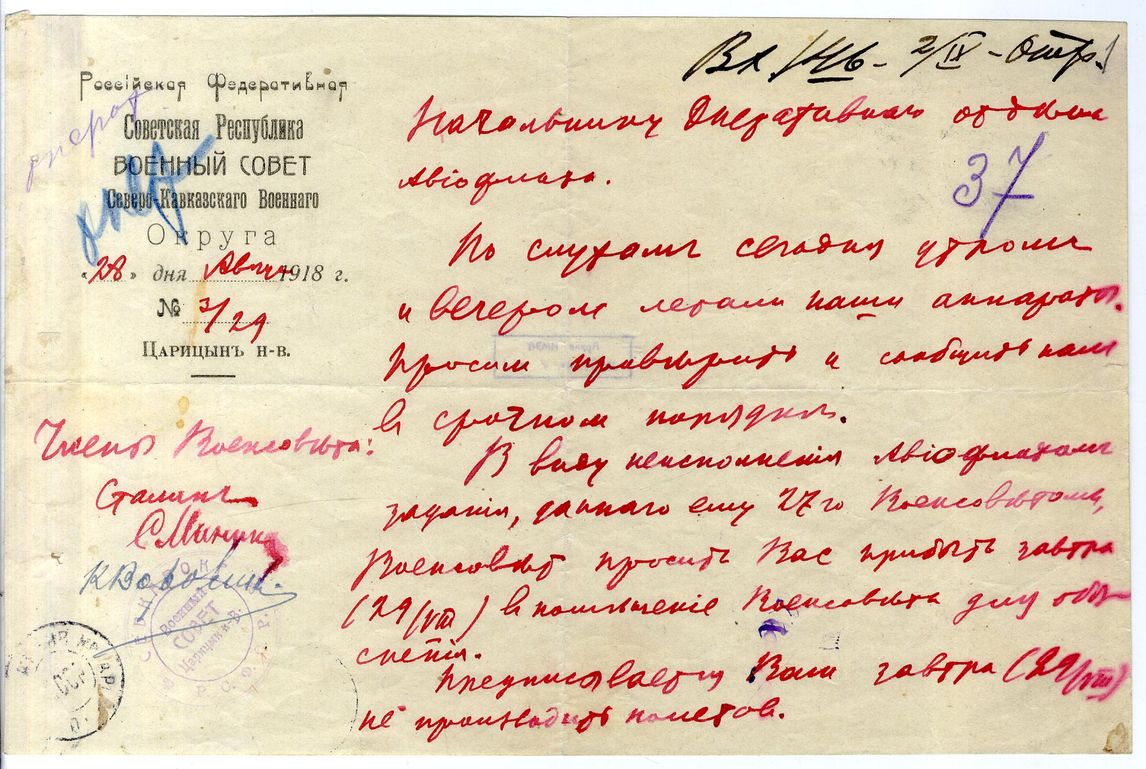 Вх. 1416 - 2/IX -
Россійская Федеративная
Советская Республика
ВОЕННЫЙ СОВЕТ
Северо-Кавказскаго Военнаго
Округа
"28" дня Авг. 1918 г.
№ 3/29
Царицынъ н-в.
операт
опер
37
Начальнику Оперативнаго отдѣла
Авіофлота.
По слухамъ сегодня утромъ
и вечером летали наши аппараты.
Просим провѣрить и сообщить нам
в срочном порядкѣ.
В виду неисполненія Авіофлотом
заданія, даннаго ему 27го Военсовѣтомъ,
Военсовѣт просит Вас прибыть завтра
(29/VIII) в помѣщеніе Военсовѣта для объя-
сненія.
Предписывается Вам завтра (29/VIII)
не производить полетов.
Члены Военсовѣта:
Сталинъ
С Минин
К Ворошил
Военный
СОВЕТ
Царицын н-В.